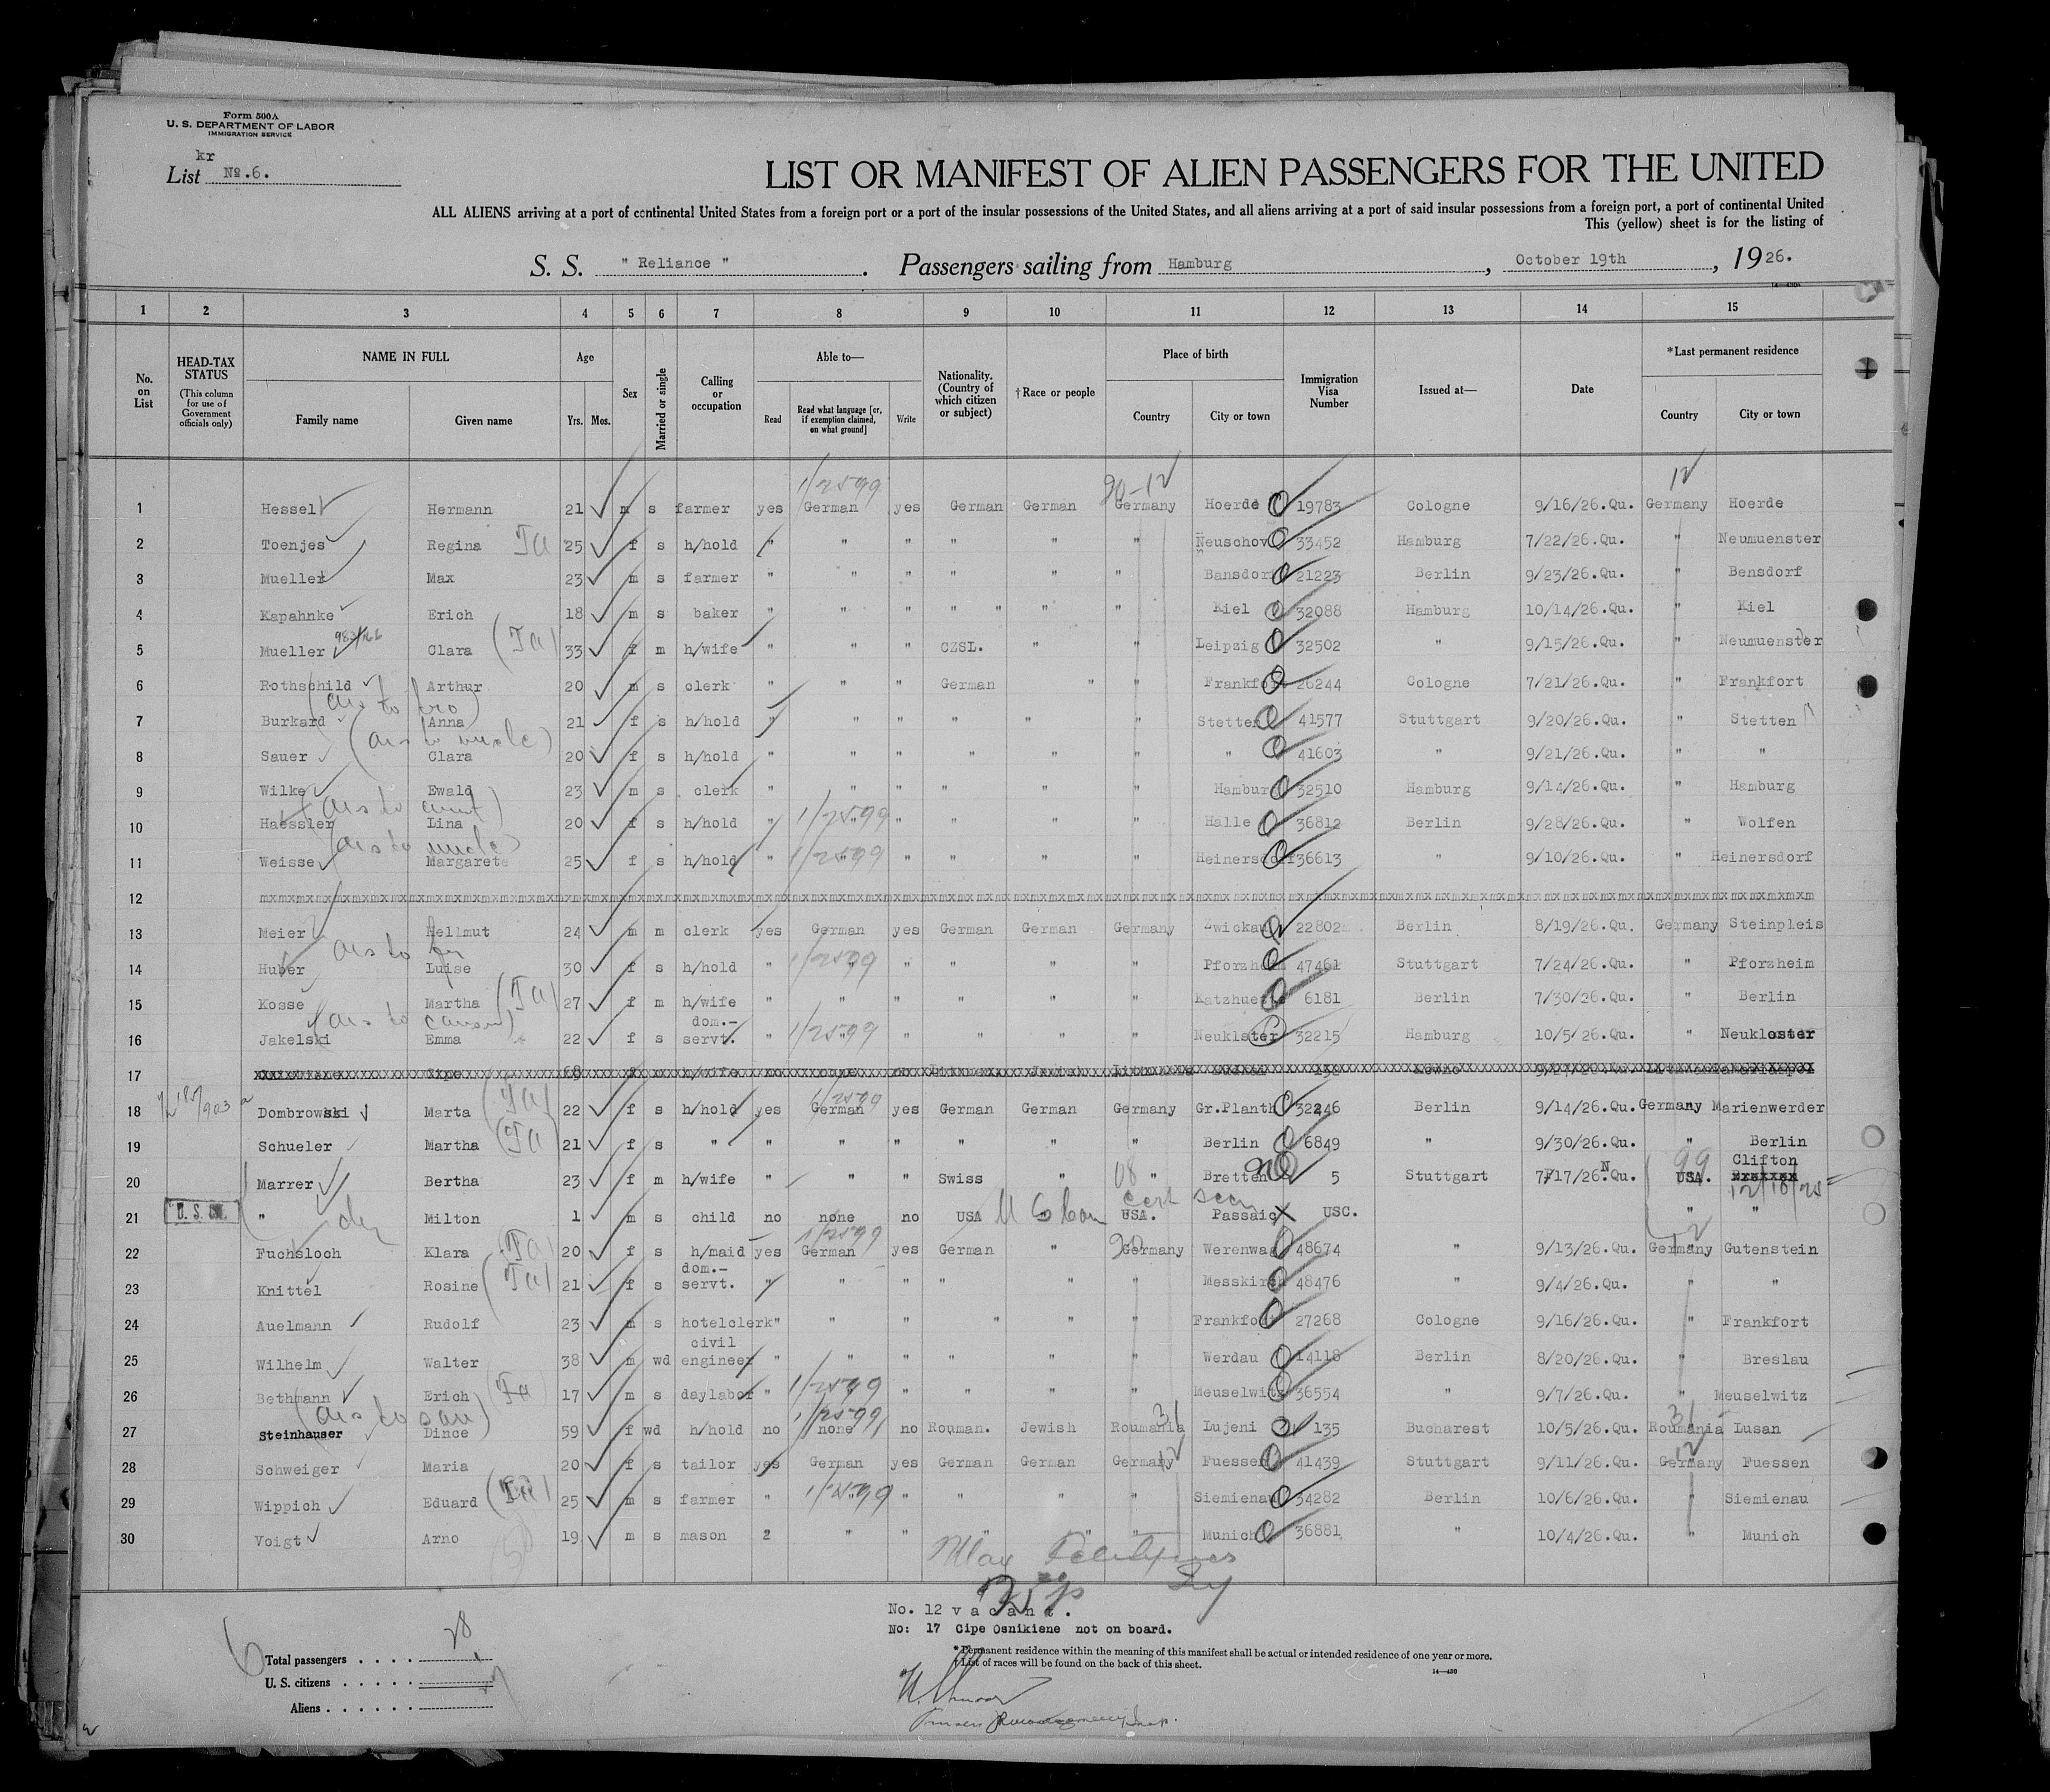 Form 500A
U. S. DEPARTMENT OF LABOR
IMMIGRATION SERVICE
kr
List No.6.
LIST OR MANIFEST OF ALIEN PASSENGERS FOR THE UNITED
ALL ALIENS arriving at a port of continental United States from a foreign port or a port of the insular possessions of the United States, and all aliens arriving at a port of said insular possessions from a foreign port, a port of continental United
This (yellow) sheet is for the listing of
S. S. " Reliance " . Passengers sailing from Hamburg , October 19th , 1926.
1 2 3 4 5 6 7 8 9 10 11 12 13 14 15
No. on List
HEAD-TAX STATUS (This column for use of Government officials only)
NAME IN FULL Family name Given name
Age Yrs. Mos.
Sex
Married or single
Calling or occupation
Able to— Read Read what language [or, if exemption claimed, on what ground] Write
Nationality. (Country of which citizen or subject)
†Race or people
Place of birth Country City or town
Immigration Visa Number
Issued at—
Date
*Last permanent residence Country City or town
1 Hessel Hermann 21 m s farmer yes German yes German German Germany Hoerde 19783 Cologne 9/16/26.Qu. Germany Hoerde
2 Toenjes Regina Ta 25 f s h/hold " " " " " " Neuschov 33452 Hamburg 7/22/26.Qu. " Neumuenster
3 Mueller Max 23 m s farmer " " " " " " Bansdorf 21223 Berlin 9/23/26.Qu. " Bensdorf
4 Kapahnke Erich 18 m s baker " " " " " " " Kiel 32088 Hamburg 10/14/26.Qu. " Kiel
5 Mueller Clara (Ta) 33 f m h/wife " " " CZSL. " " Leipzig 32502 " 9/15/26.Qu. " Neumuenster
6 Rothschild Arthur 20 m s clerk " " " German " " Frankfort 26244 Cologne 7/21/26.Qu. " Frankfort
7 Burkard Anna 21 f s h/hold " " " " " " Stetten 41577 Stuttgart 9/20/26.Qu. " Stetten
8 Sauer Clara 20 f s h/hold " " " " " " " 41603 " 9/21/26.Qu. " "
9 Wilke Ewald 23 m s clerk " " " " " " Hamburg 32510 Hamburg 9/14/26.Qu. " Hamburg
10 Haessler Lina 20 f s h/hold " " " " " " Halle 36812 Berlin 9/28/26.Qu. " Wolfen
11 Weisse Margarete 25 f s h/hold " " " " " " Heinersdorf 36613 " 9/10/26.Qu. " Heinersdorf
12
13 Meier Hellmut 24 m m clerk yes German yes German German Germany Zwickau 22802 Berlin 8/19/26.Qu. Germany Steinpleis
14 Huber Luise 30 f s h/hold " " " " " " Pforzheim 47461 Stuttgart 7/24/26.Qu. " Pforzheim
15 Kosse Martha (Ta) 27 f m h/wife " " " " " " Katzhuette 6181 Berlin 7/30/26.Qu. " Berlin
16 Jakelski Emma 22 f s dom.-servt. " " " " " " Neuklster 32215 Hamburg 10/5/26.Qu. " Neukloster
17
18 Dombrowski Marta (Ta) 22 f s h/hold yes German yes German German Germany Gr.Planth 32246 Berlin 9/14/26.Qu. Germany Marienwerder
19 Schueler Martha (Ta) 21 f s " " " " " " " Berlin 6849 " 9/30/26.Qu. " Berlin
20 Marrer Bertha 23 f m h/wife " " " Swiss " " Bretten 5 Stuttgart 7/17/26.Qu. USA. Clifton
21 U. S. " Milton 1 m s child no none no USA USA. Passaic USC. " "
22 Fuchsloch Klara (Ta) 20 f s h/maid yes German yes German " Germany Werenwag 48674 " 9/13/26.Qu. Germany Gutenstein
23 Knittel Rosine (Ta) 21 f s dom.-servt. " " " " " " Messkirch 48476 " 9/4/26.Qu. " "
24 Auelmann Rudolf 23 m s hotelclerk" " " " " " Frankfort 27268 Cologne 9/16/26.Qu. " Frankfort
25 Wilhelm Walter 38 m wd civil engineer " " " " " " Werdau 14118 Berlin 8/20/26.Qu. " Breslau
26 Bethmann Erich (Ta) 17 m s daylabor " " " " " " Meuselwitz 36554 " 9/7/26.Qu. " Meuselwitz
27 Steinhauser Dince 59 f wd h/hold no none no Rouman. Jewish Roumania Lujeni 135 Bucharest 10/5/26.Qu. Roumania Lusan
28 Schweiger Maria 20 f s tailor yes German yes German German Germany Fuessen 41439 Stuttgart 9/11/26.Qu. Germany Fuessen
29 Wippich Eduard 25 m s farmer " " " " " " Siemienau 34282 Berlin 10/6/26.Qu. " Siemienau
30 Voigt Arno 19 m s mason 2 " " " " " Munich 36881 " 10/4/26.Qu. " Munich
No. 12 vacant.
No: 17 Cipe Osnikiene not on board.
* Permanent residence within the meaning of this manifest shall be actual or intended residence of one year or more.
† List of races will be found on the back of this sheet.
14—430
Total passengers . . . . 28
U. S. citizens . . . . .
Aliens . . . . . .